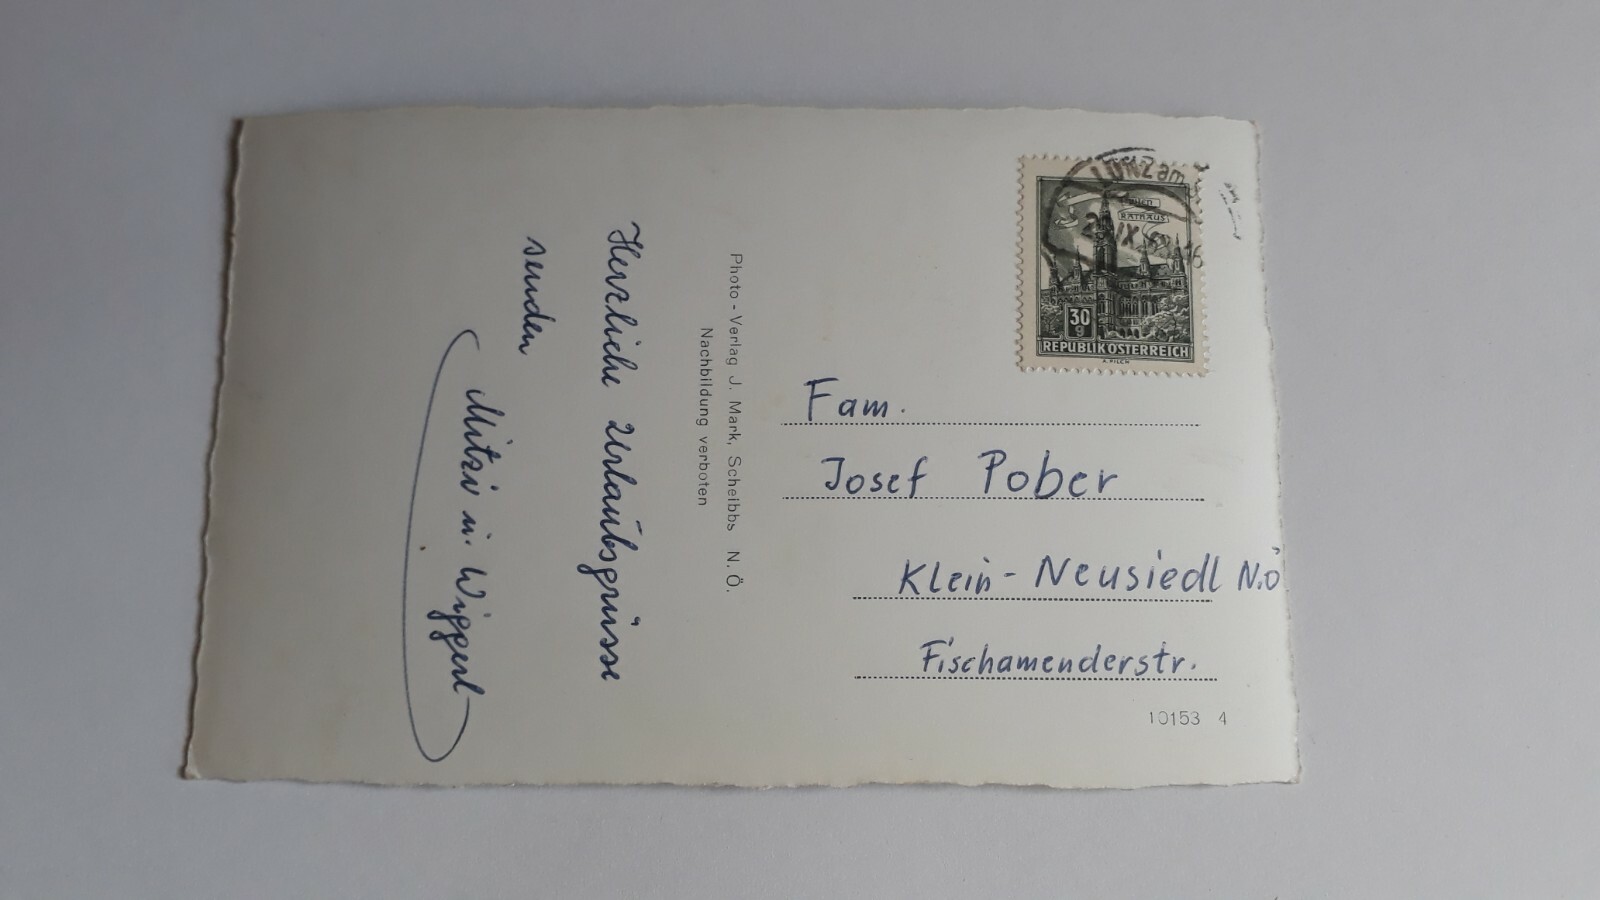 Herzliche Urlaubsgrüsse
senden
Mitzi u. Wiggerl
Photo - Verlag J. Mark, Scheibbs N. Ö.
Nachbildung verboten
LUNZ am
IX.
WIEN
RATHAUS
30
g
REPUBLIK ÖSTERREICH
A. PILCH
Fam.
Josef Pober
Klein - Neusiedl N.Ö
Fischamenderstr.
10153 4